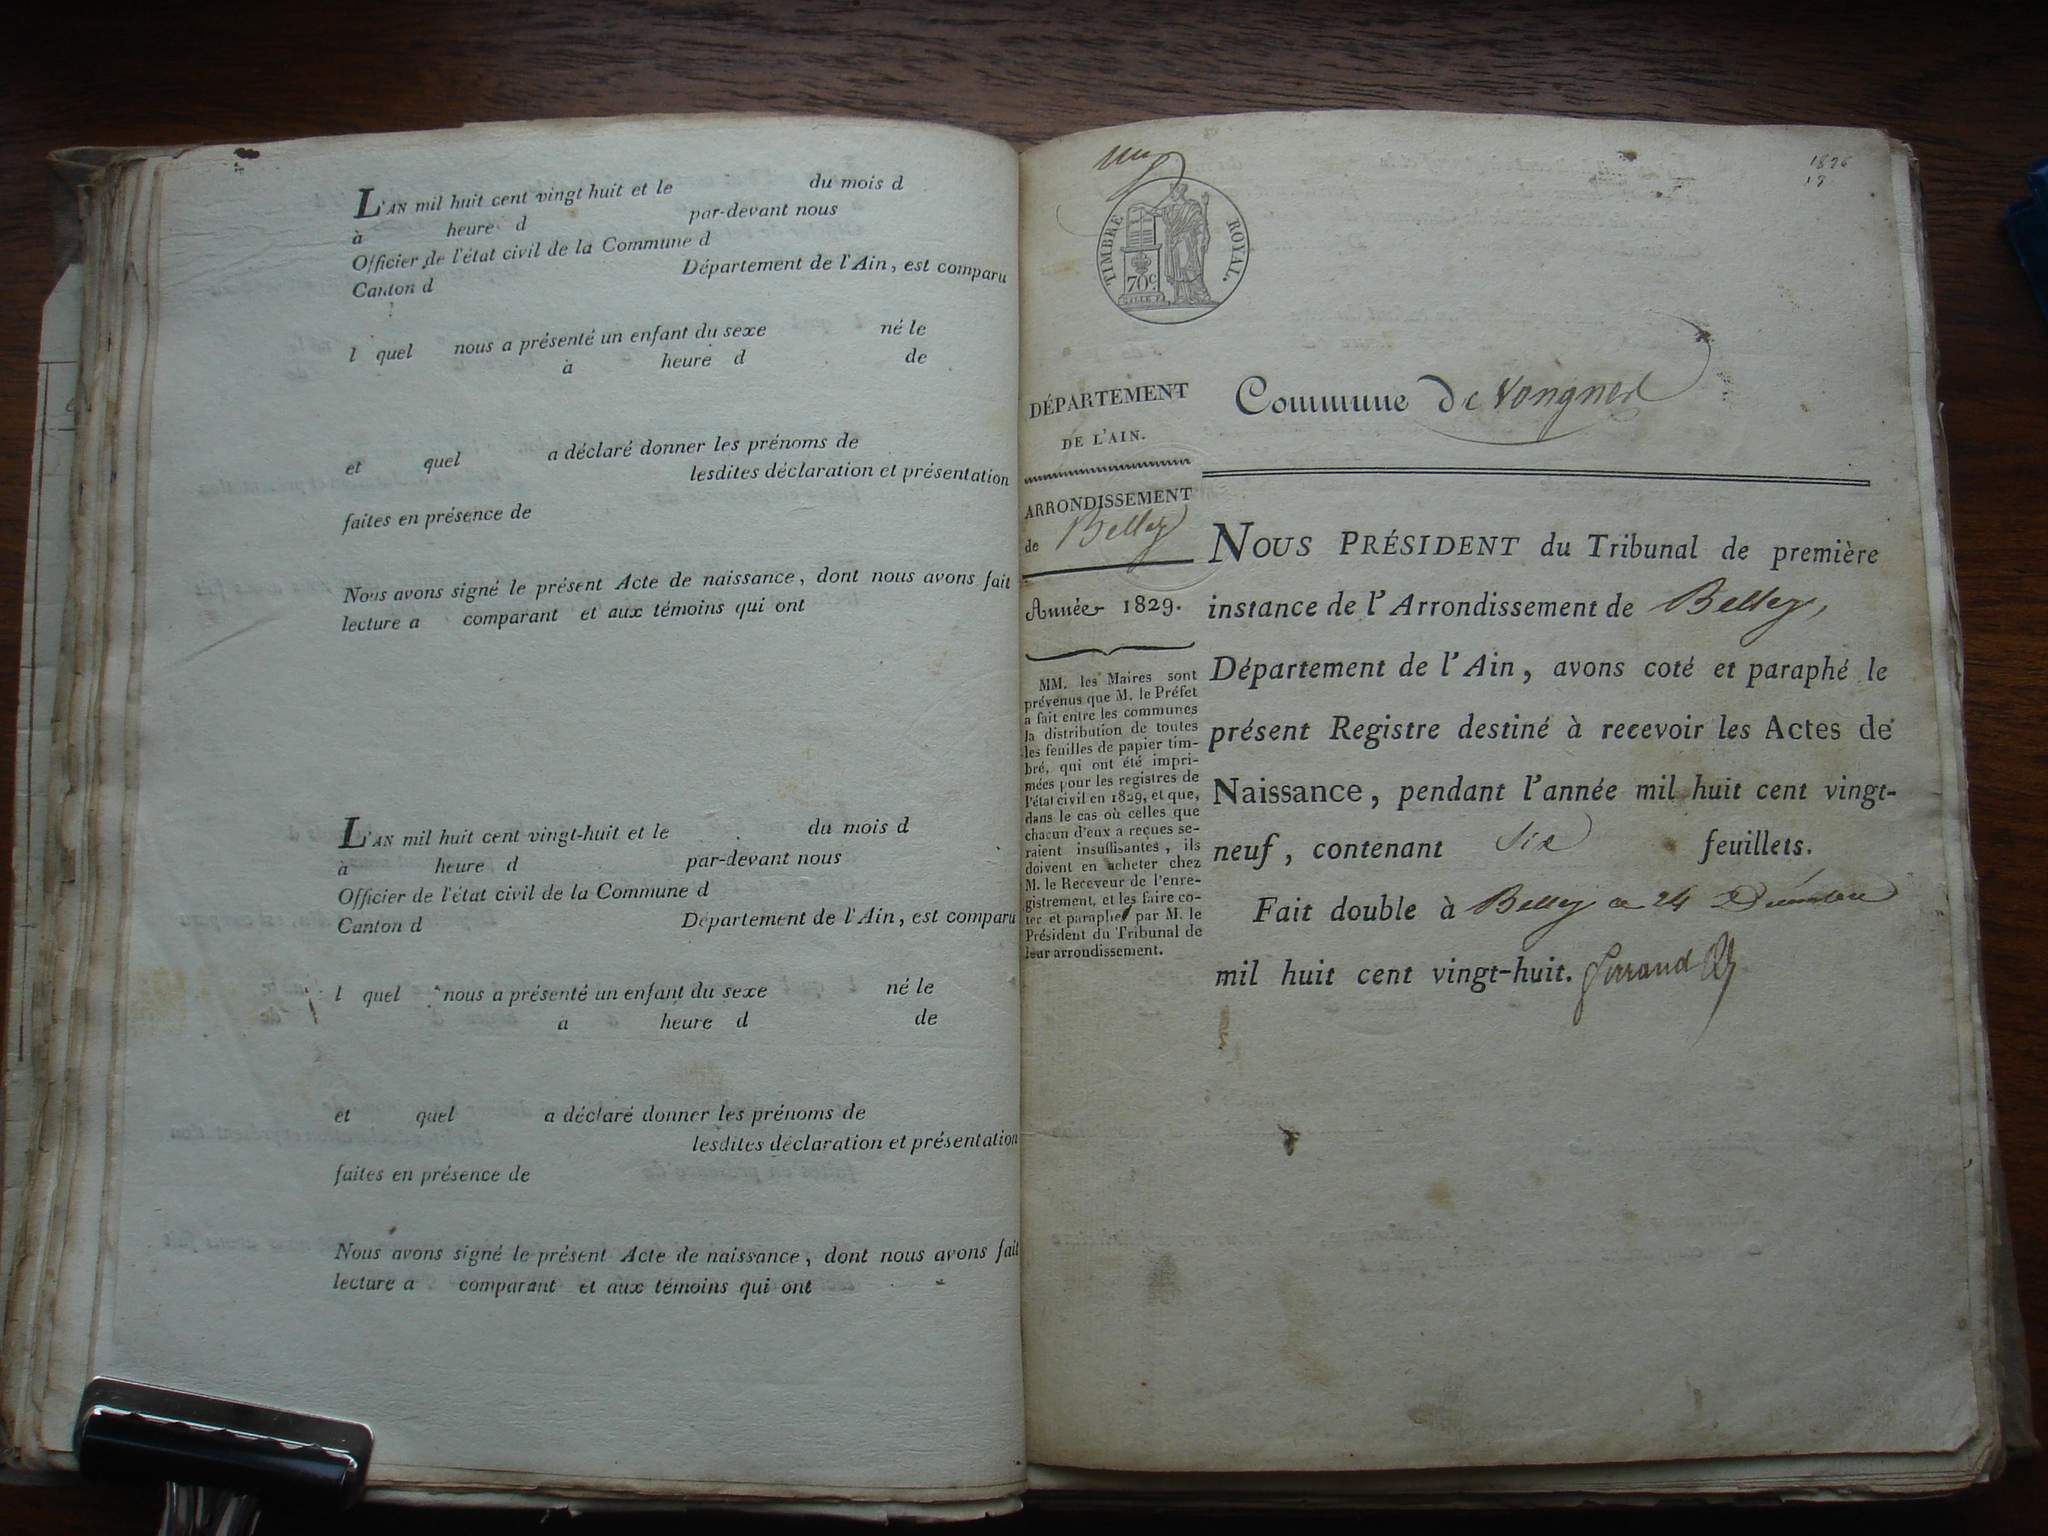 L'AN mil huit cent vingt huit et le du mois d
à heure d par-devant nous
Officier de l'état civil de la Commune d
Canton d Département de l'Ain, est comparu
l quel nous a présenté un enfant du sexe né le
à heure d de
et quel a déclaré donner les prénoms de
lesdites déclaration et présentation
faites en présence de
Nous avons signé le présent Acte de naissance, dont nous avons fait
lecture a comparant et aux témoins qui ont
L'AN mil huit cent vingt-huit et le du mois d
à heure d par-devant nous
Officier de l'état civil de la Commune d
Canton d Département de l'Ain, est comparu
l quel nous a présenté un enfant du sexe né le
à heure d de
et quel a déclaré donner les prénoms de
lesdites déclaration et présentation
faites en présence de
Nous avons signé le présent Acte de naissance, dont nous avons fait
lecture a comparant et aux témoins qui ont
TIMBRE ROYAL.
70c.
DÉPARTEMENT
DE L'AIN.
ARRONDISSEMENT
de Belley
Année 1829.
MM. les Maires sont
prévenus que M. le Préfet
a fait entre les communes
la distribution de toutes
les feuilles de papier tim-
bré, qui ont été impri-
mées pour les registres de
l'état civil en 1829, et que,
dans le cas où celles que
chacun d'eux a reçues se-
raient insuffisantes, ils
doivent en acheter chez
M. le Receveur de l'enre-
gistrement, et les faire co-
ter et parapher par M. le
Président du Tribunal de
leur arrondissement.
Commune de Vongnes
NOUS PRÉSIDENT du Tribunal de première
instance de l'Arrondissement de Belley,
Département de l'Ain, avons coté et paraphé le
présent Registre destiné à recevoir les Actes de
Naissance, pendant l'année mil huit cent vingt-
neuf, contenant Six feuillets.
Fait double à Belley ce 24 Décembre
mil huit cent vingt-huit.